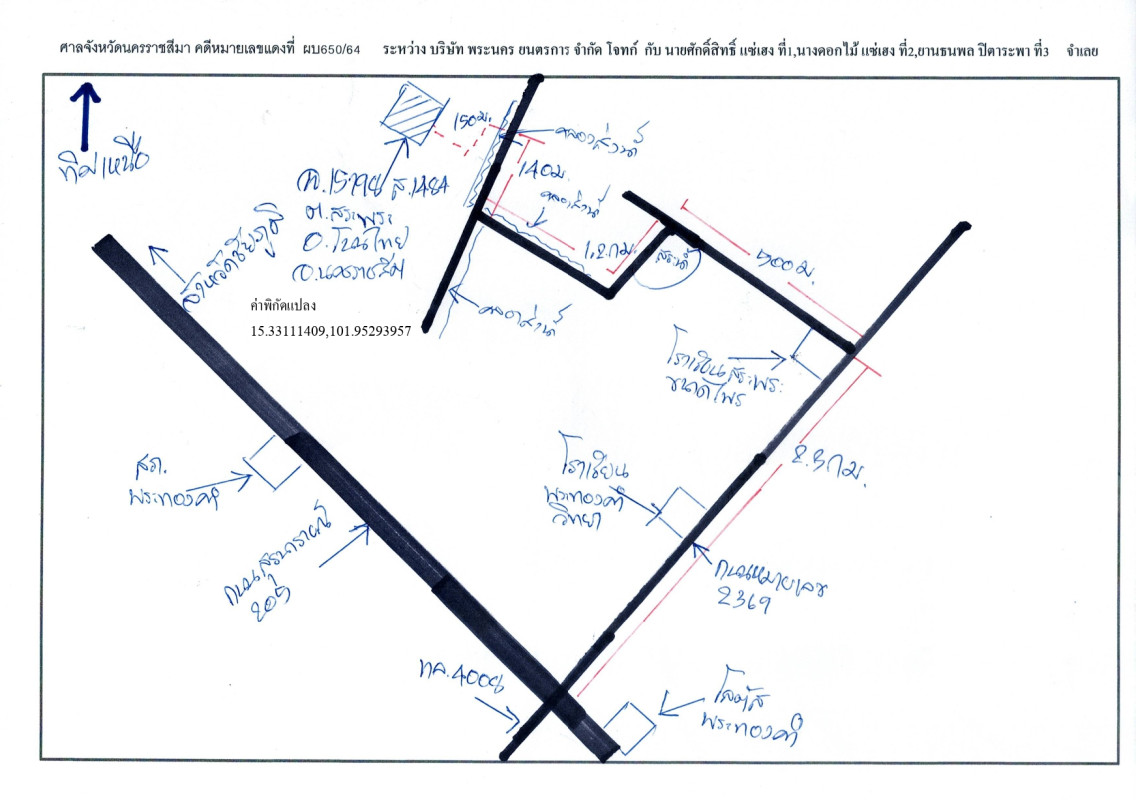 ศาลจังหวัดนครราชสีมา คดีหมายเลขแดงที่ ผบ650/64 ระหว่าง บริษัท พระนคร ยนตรการ จำกัด โจทก์ กับ นายศักดิ์สิทธิ์ แซ่เฮง ที่1,นางดอกไม้ แซ่เฮง ที่2,ยานธนพล ปิตาระพา ที่3 จำเลย
ทิศเหนือ
150ม.
คลองส่งน้ำ
140ม.
คลองส่งน้ำ
ต.สระพระ
อ.โนนไทย
จ.นครราชสีมา
1.2กม.
สระน้ำ
500ม.
ค่าพิกัดแปลง
15.33111409,101.95293957
คลองส่งน้ำ
โรงเรียนสระพระ
สภ.
พระทองคำ
โรงเรียน
พระทองคำ
วิทยา
2.3กม.
ถนนสุรนารายณ์
205
ถนนหมายเลข
2369
โลตัส
พระทองคำ